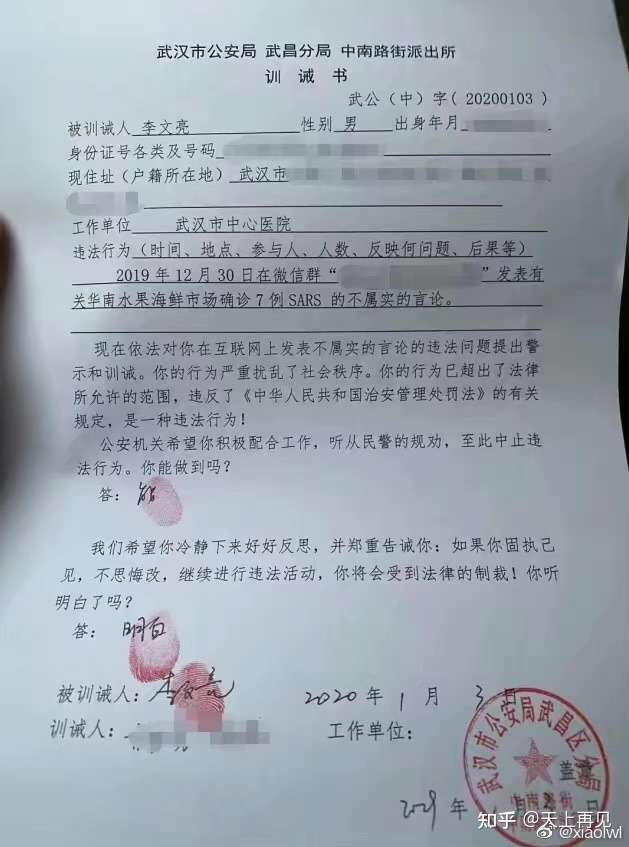 武汉市公安局 武昌分局 中南路街派出所
训 诫 书
武公（中）字（20200103）
被训诫人 李文亮 性别 男 出身年月
身份证号各类及号码
现住址（户籍所在地） 武汉市
工作单位 武汉市中心医院
违法行为（时间、地点、参与人、人数、反映何问题、后果等）
2019 年 12 月 30 日在微信群“ ”发表有
关华南水果海鲜市场确诊 7 例 SARS 的不属实的言论。
现在依法对你在互联网上发表不属实的言论的违法问题提出警
示和训诫。你的行为严重扰乱了社会秩序。你的行为已超出了法律
所允许的范围，违反了《中华人民共和国治安管理处罚法》的有关
规定，是一种违法行为！
公安机关希望你积极配合工作，听从民警的规劝，至此中止违
法行为。你能做到吗？
答： 能
我们希望你冷静下来好好反思，并郑重告诫你：如果你固执己
见，不思悔改，继续进行违法活动，你将会受到法律的制裁！你听
明白了吗？
答： 明白
被训诫人： 李文亮 2020 年 1 月 3 日
训诫人： 工作单位：
武汉市公安局武昌区分局
盖章
中南路街
年 月 日
知乎 @天上再见
@xiaolwl